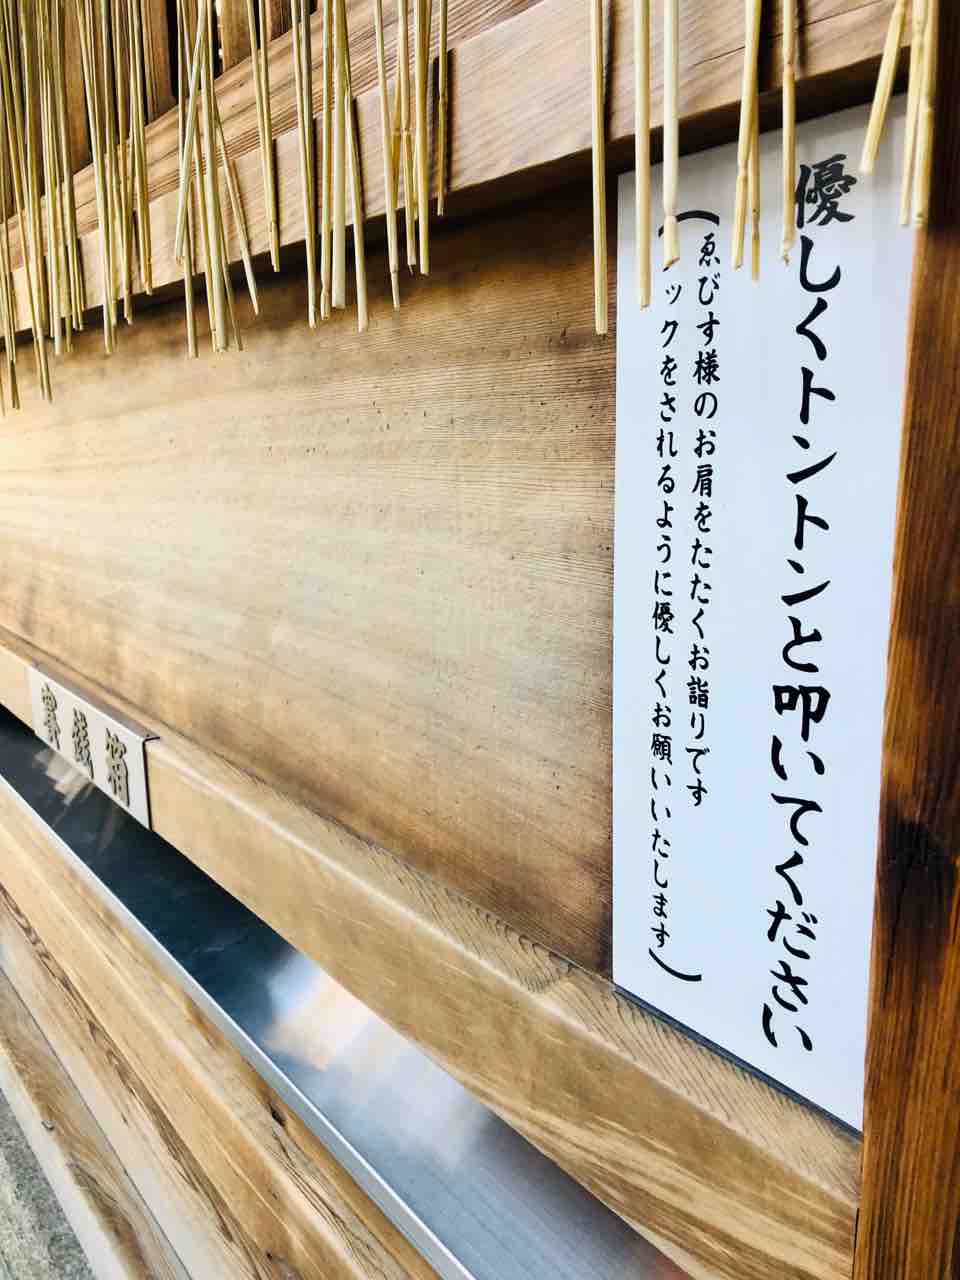 優しくトントンと叩いてください
（ゑびす様のお肩をたたくお詣りです
ックをされるように優しくお願いいたします）
賽銭箱